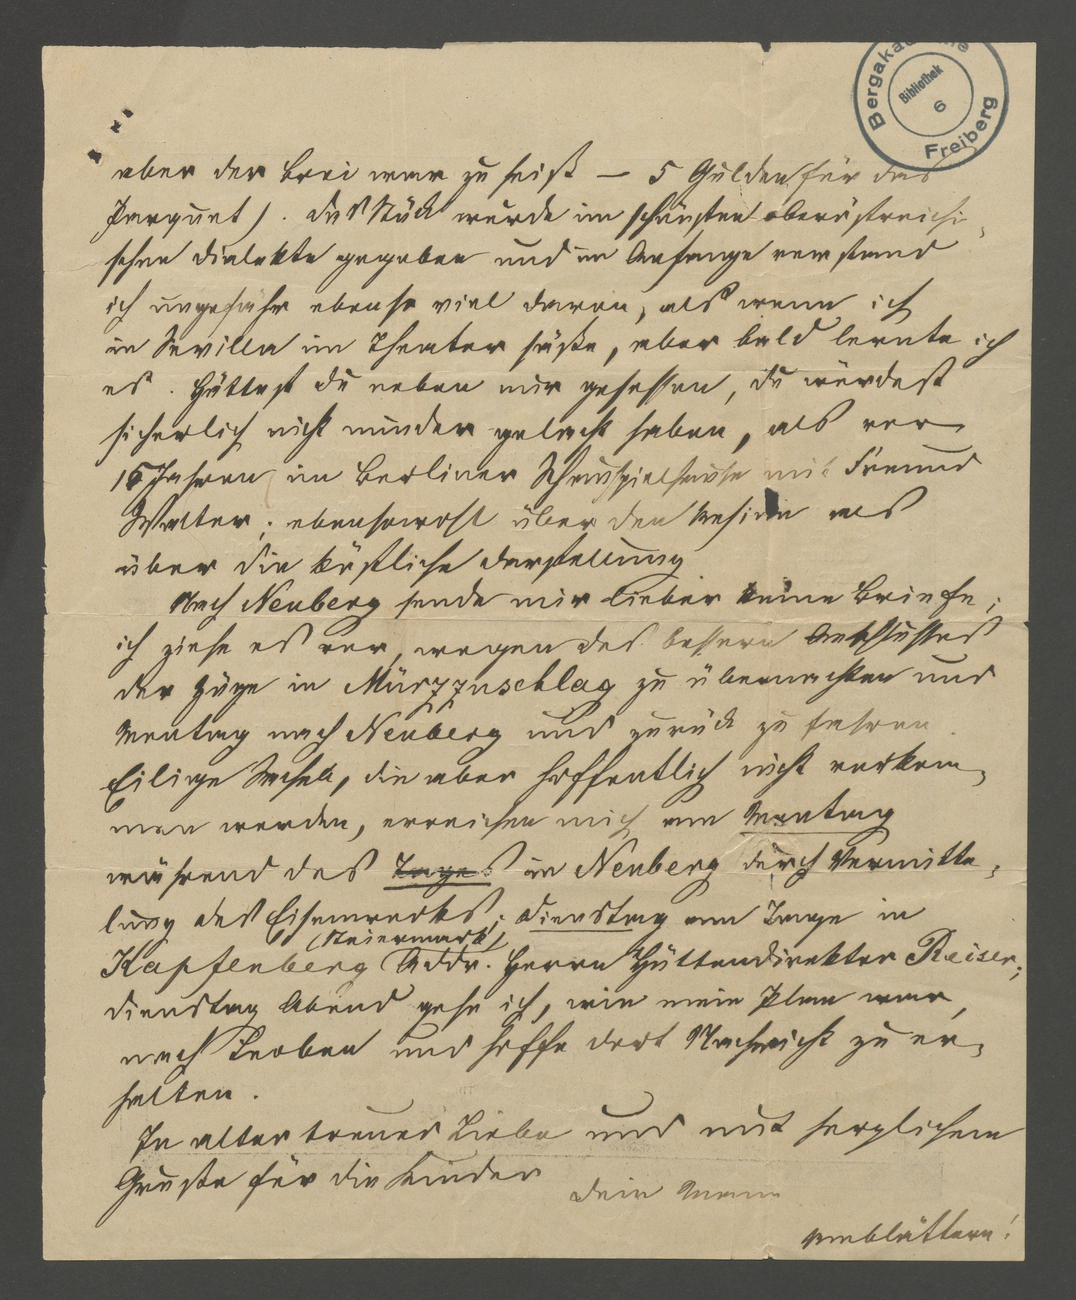 Bergakademie
Bibliothek
6
Freiberg
aber der Brei war zu heiß — 5 Gulden für das
Parquet /. Das Stück wurde im schönsten oberöstreichi-
schen Dialekte gegeben und im Anfange verstand
ich ungefähr ebenso viel davon, als wenn ich
in Sevilla im Theater säße, aber bald lernte ich
es. Hättest du neben mir gesessen, du würdest
sicherlich nicht minder gelacht haben, als vor
15 Jahren im Berliner Schauspielhause mit Freund
Walter; ebensowohl über den als
über die köstliche Darstellung
Nach Neuberg sende mir lieber keine Briefe;
ich ziehe es vor, wegen des bessern Anschlusses
der Züge in Mürzzuschlag zu übernachten und
Montag nach Neuberg und zurück zu fahren.
Eilige Sachen, die aber hoffentlich nicht vorkom-
men werden, erreichen mich am Montag
während des Tages in Neuberg durch Vermitte-
lung des Eisenwerks; Dienstag am Tage in
(Steiermark)
Kapfenberg (Addr. Herrn Hüttendirektor Reiser;
Dienstag Abend gehe ich, wie mein Plan war,
nach Leoben und hoffe dort Nachricht zu er-
halten.
In alter treuer Liebe und mit herzlichem
Gruße für die Kinder
Dein Mann
umblättern!